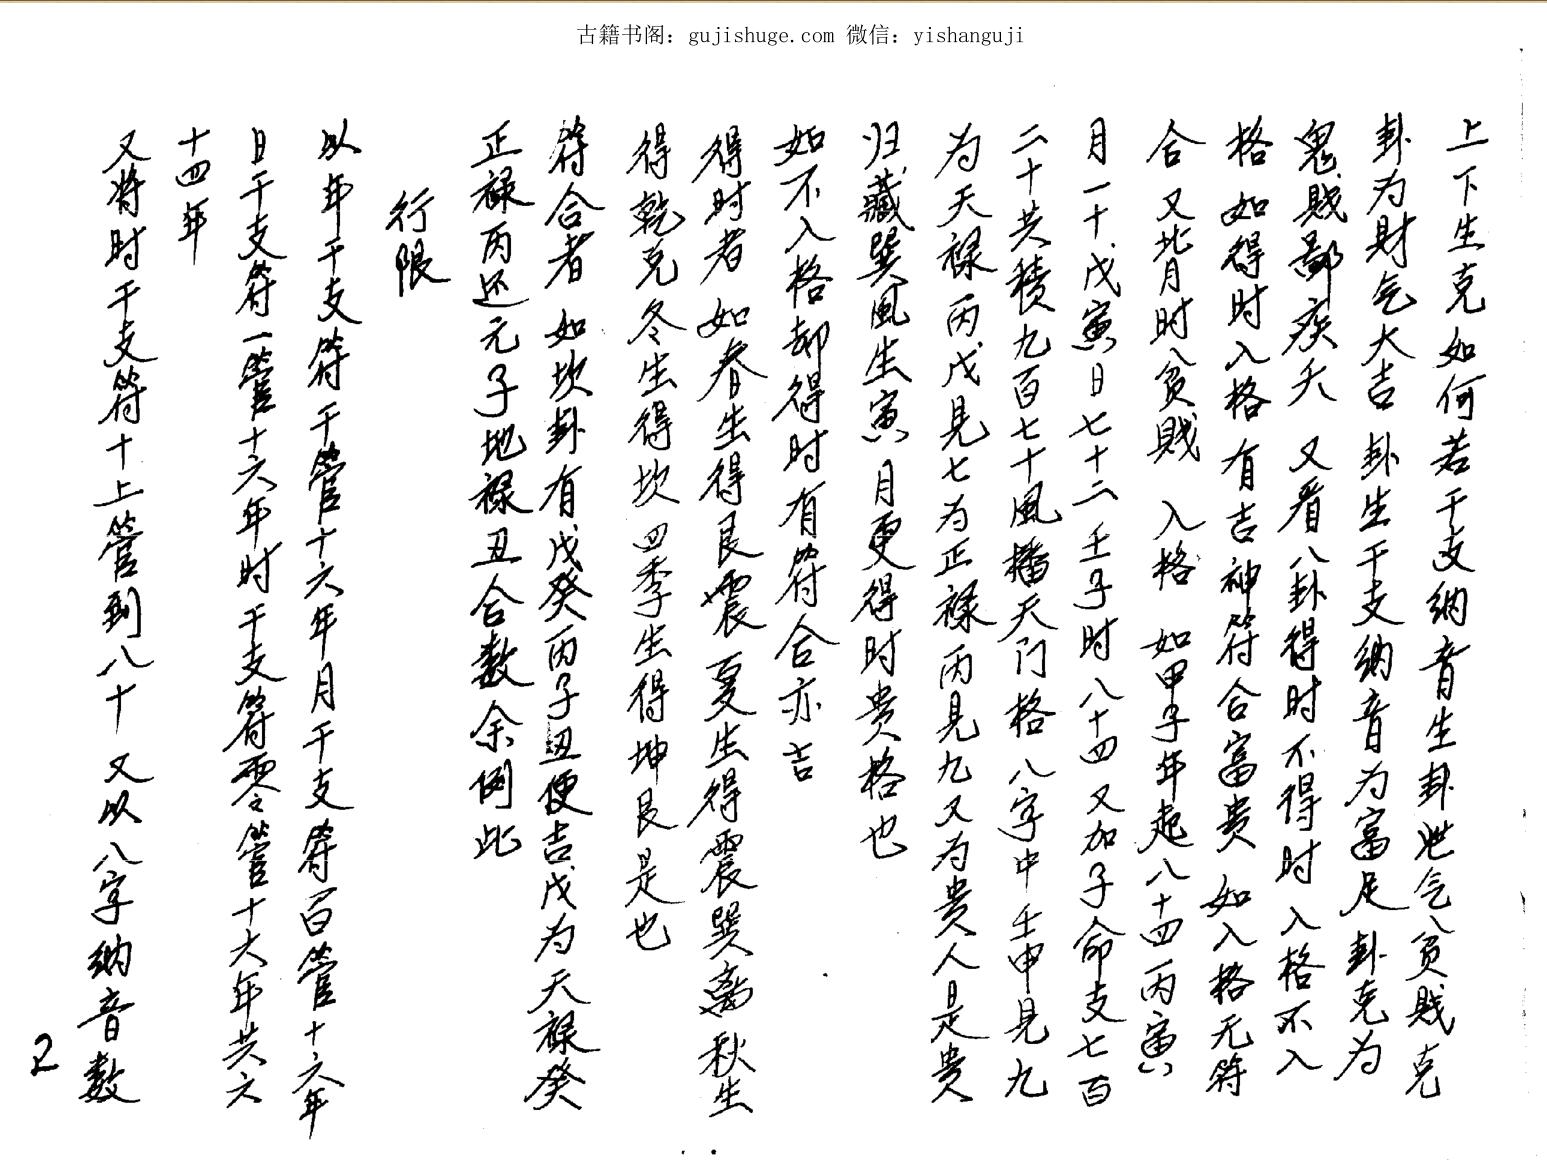 古籍书阁：gujishuge.com 微信：yishanguji
上下生克如何若干支纳音生卦泄气贫贱克
卦为财气大吉 卦生干支纳音为富足 卦克为
鬼贱鄙疾夭 又看八卦得时不得时 入格不入
格 如得时入格 有吉神符合富贵 如入格无符
合 又背月时贫贱 入格 如甲子年起八十四丙寅
月一十戊寅日七十二壬子时八十四又加子命支七百
二十共積九百七十風檣天门格 八字中壬申見九
为天禄丙戊見七为正禄丙見九又为贵人是贵
归藏巽風生寅月更得时贵格也
如不入格却得时有符合亦吉
得时者如春生得艮震夏生得震巽离秋生
得乾兑冬生得坎四季生得坤艮是也
符合者 如坎卦有戊癸丙子丑便吉戊为天禄癸
正禄丙还元子地禄丑合数余倒此
行限
以年干支符千管十六年月干支符百管十六年
日干支符一管十六年时干支符零管十六年共六
十四年
又将时干支符十上管到八十 又以八字纳音数
2